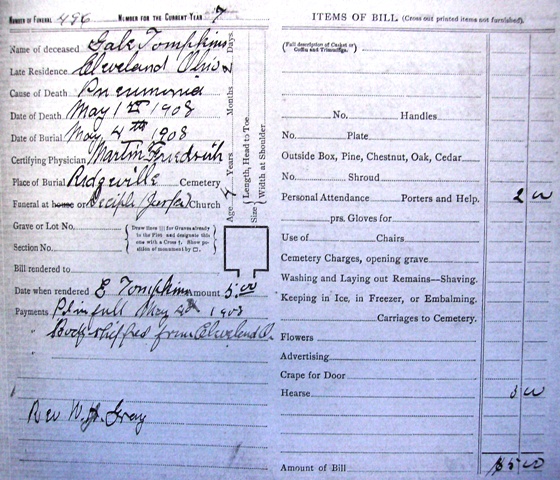 NUMBER OF FUNERAL 496 NUMBER FOR THE CURRENT YEAR 7
Name of deceased Gale Tompkins
Late Residence Cleveland Ohio
Cause of Death Pneumonia
Date of Death May 1st 1908
Date of Burial May 4th 1908
Certifying Physician Martin Friedrich
Place of Burial Ridgeville Cemetery
Funeral at house or Church
Grave or Lot No.
Section No.
{Draw lines for Graves already in the Plot and designate this one with a Cross †. Show position of monument by □.}
Bill rendered to
Date when rendered E Tompkins Amount 5.00
Payments Pd in full May 1908
" Body shipped from Cleveland O.
"
Rev W. Gray
Age Years Months 2 Days.
Size { Length, Head to Toe
Width at Shoulder
ITEMS OF BILL (Cross out printed items not furnished).
{Full description of Casket or Coffin and Trimmings.}
No. Handles
No. Plate
Outside Box, Pine, Chestnut, Oak, Cedar
No. Shroud
Personal Attendance Porters and Help. 2 00
prs. Gloves for
Use of Chairs
Cemetery Charges, opening grave
Washing and Laying out Remains—Shaving.
Keeping in Ice, in Freezer, or Embalming.
Carriages to Cemetery.
Flowers
Advertising
Crape for Door
Hearse 3 00
Amount of Bill $5 00